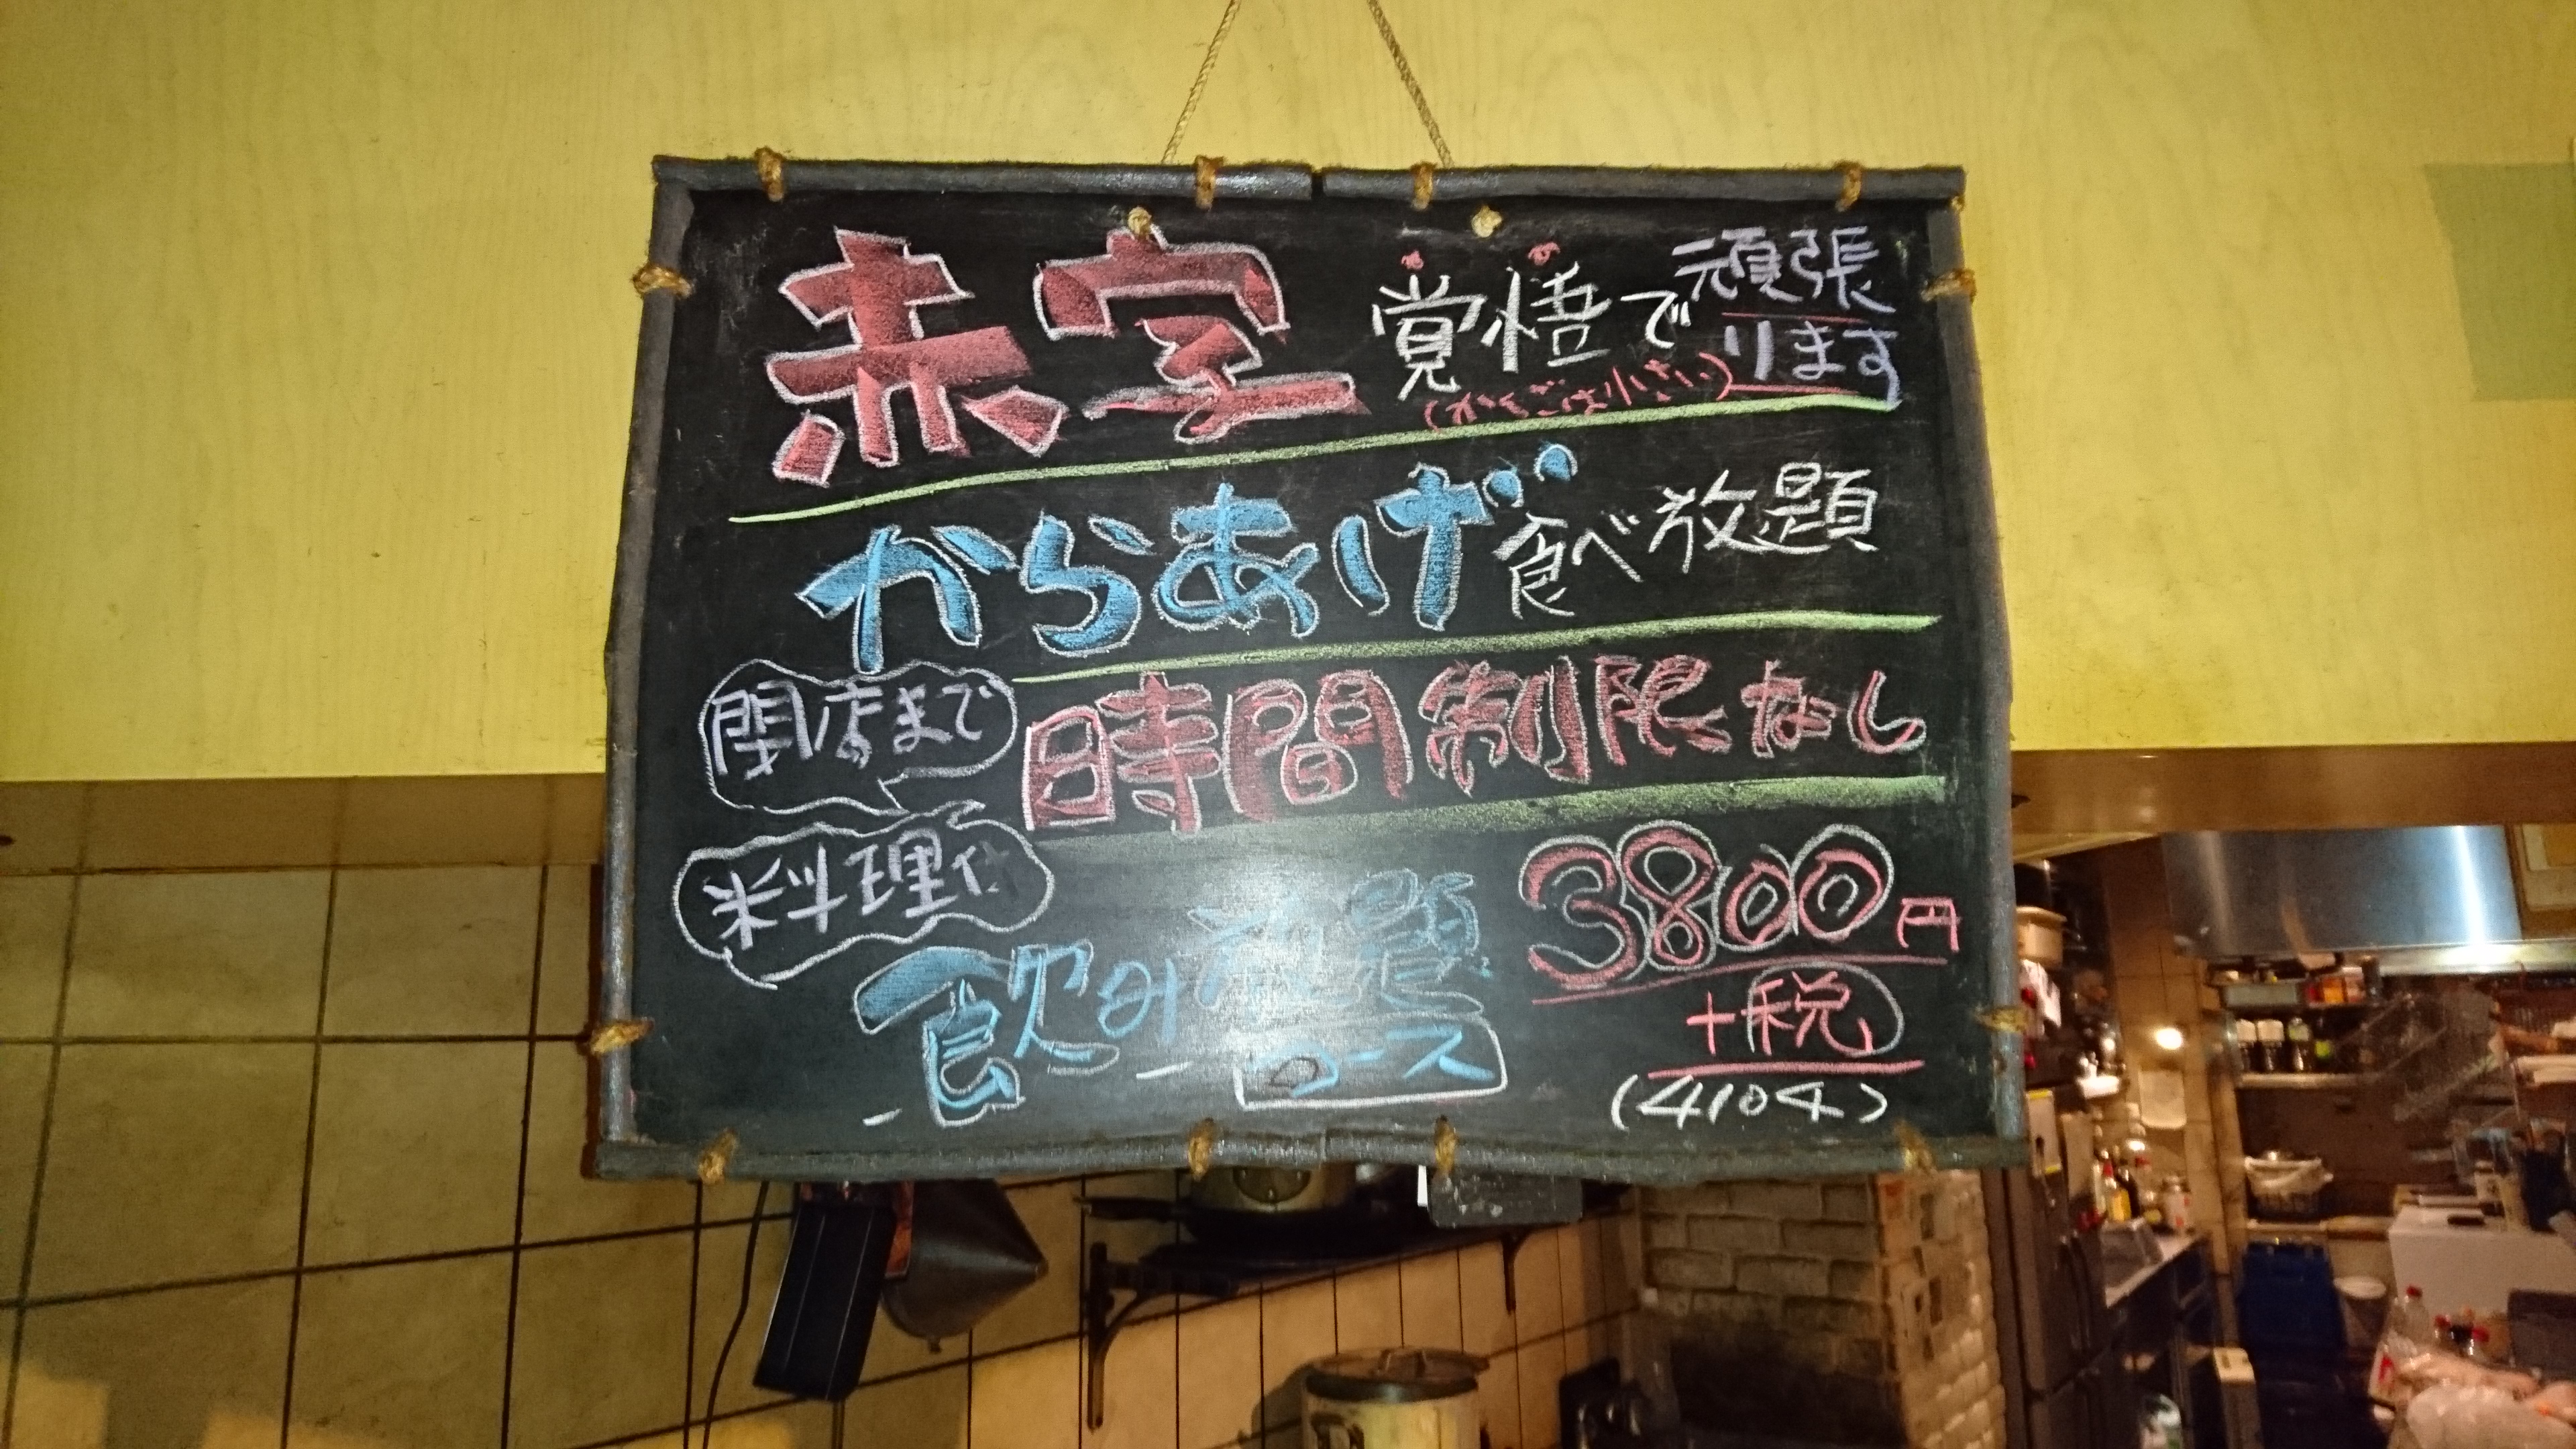 赤字覚悟で頑張ります
(かくごは小さい)
からあげ食べ放題
閉店まで
時間制限なし
料理付
飲み放題
コース
3800円
+税
(4104)